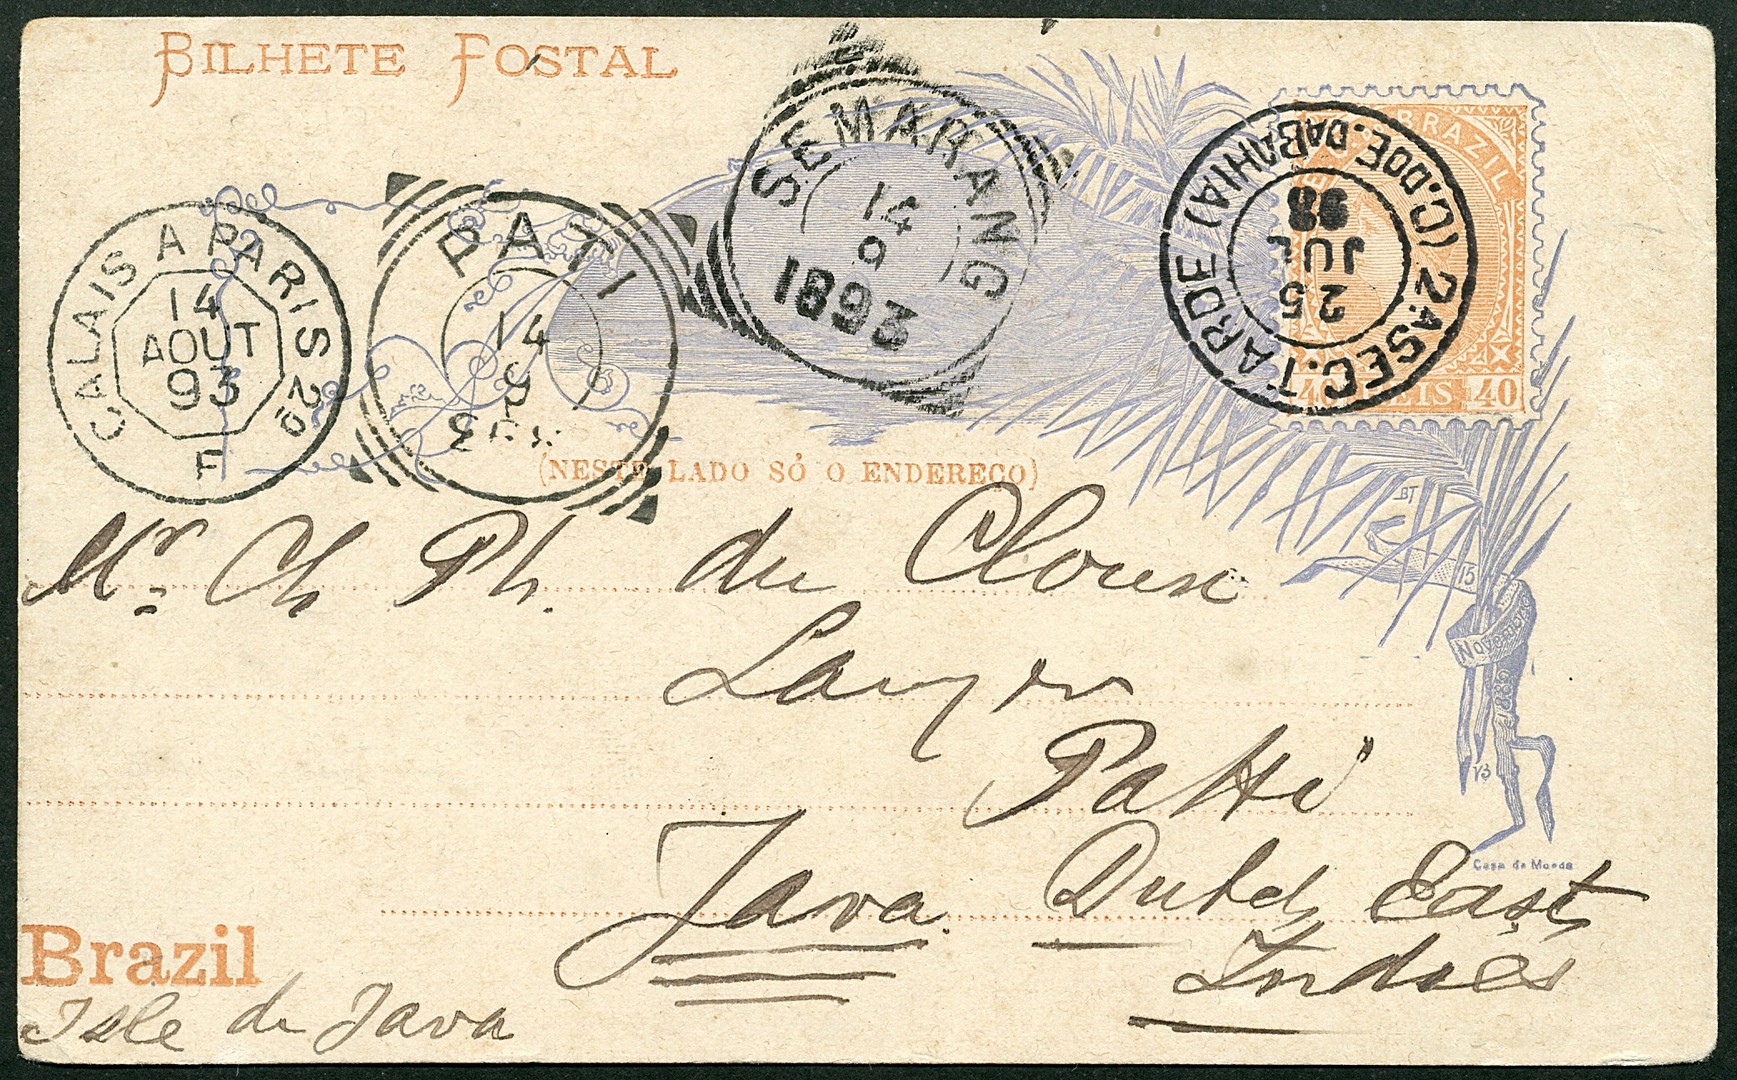 BILHETE POSTAL
SEMARANG
14
9
1893
2ª SEC. (C. DO E. DA BAHIA) C. TARDE
25
JUL
93
BRAZIL
40 REIS 40
CALAIS A PARIS 2º
14
AOUT
93
F
PATI
14
9
(NESTE LADO SÓ O ENDEREÇO)
BT
Mr. Ch Ph. du Cloux
15
NOVEMBRO
Patti
Java Dutch East
Indies
Casa da Moeda
Brazil
Isle de Java